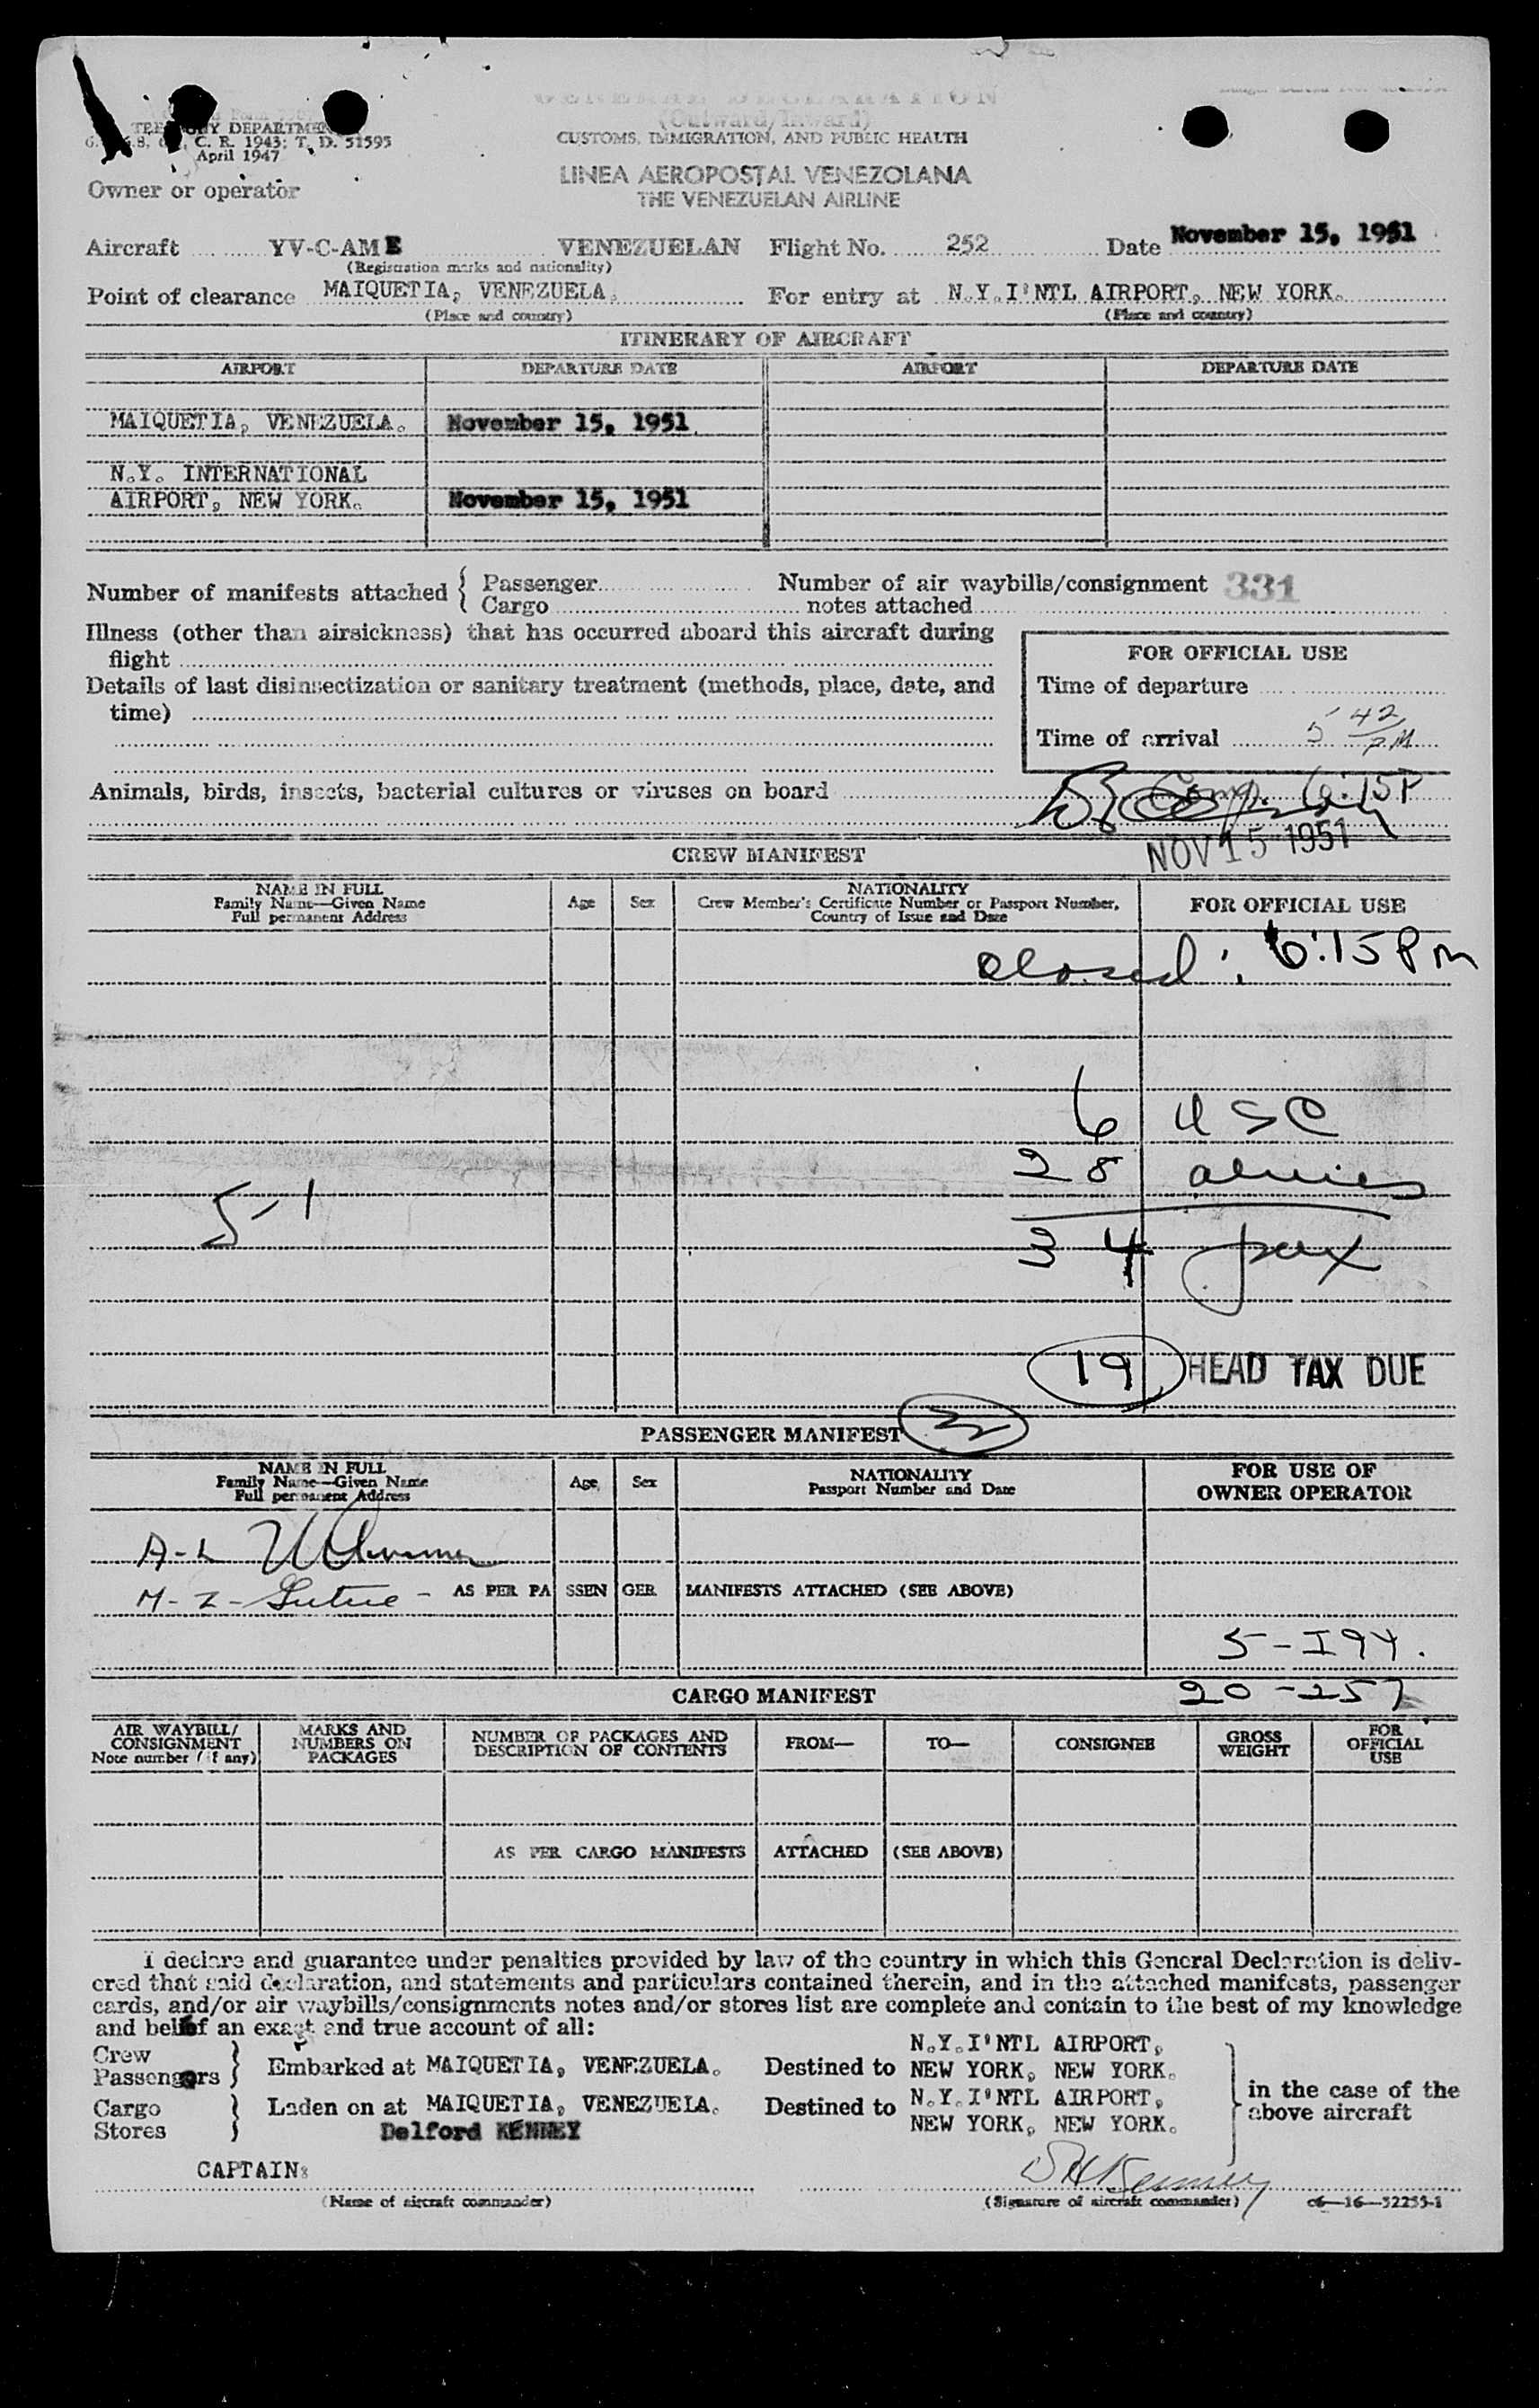 GENERAL DECLARATION
(Outward/Inward)
TREASURY DEPARTMENT
C. R. 1943; T. D. 51595
April 1947
CUSTOMS, IMMIGRATION, AND PUBLIC HEALTH
LINEA AEROPOSTAL VENEZOLANA
THE VENEZUELAN AIRLINE
Owner or operator
Aircraft YV-C-AME VENEZUELAN Flight No. 252 Date November 15, 1951
(Registration marks and nationality)
Point of clearance MAIQUETIA, VENEZUELA. For entry at N.Y.I'NTL AIRPORT, NEW YORK.
(Place and country) (Place and country)
ITINERARY OF AIRCRAFT
AIRPORT DEPARTURE DATE AIRPORT DEPARTURE DATE
MAIQUETIA, VENEZUELA. November 15, 1951
N.Y. INTERNATIONAL
AIRPORT, NEW YORK. November 15, 1951
Number of manifests attached { Passenger Number of air waybills/consignment 331
Cargo notes attached
Illness (other than airsickness) that has occurred aboard this aircraft during
flight
FOR OFFICIAL USE
Details of last disinsectization or sanitary treatment (methods, place, date, and
time)
Time of departure
Time of arrival 5 42 PM
Animals, birds, insects, bacterial cultures or viruses on board Comp. 6:15P
NOV 15 1951
CREW MANIFEST
NAME IN FULL
Family Name—Given Name
Full permanent Address
Age Sex
NATIONALITY
Crew Member's Certificate Number or Passport Number,
Country of Issue and Date
FOR OFFICIAL USE
closed: 6:15 PM
6 USC
28 aliens
5-1
34 pax
19 HEAD TAX DUE
PASSENGER MANIFEST
NAME IN FULL
Family Name—Given Name
Full permanent Address
Age Sex
NATIONALITY
Passport Number and Date
FOR USE OF
OWNER OPERATOR
A-L
M-Z- AS PER PASSENGER MANIFESTS ATTACHED (SEE ABOVE)
5-I94.
20-257
CARGO MANIFEST
AIR WAYBILL/
CONSIGNMENT
Note number (if any)
MARKS AND
NUMBERS ON
PACKAGES
NUMBER OF PACKAGES AND
DESCRIPTION OF CONTENTS
FROM— TO— CONSIGNEE
GROSS
WEIGHT
FOR
OFFICIAL
USE
AS PER CARGO MANIFESTS ATTACHED (SEE ABOVE)
I declare and guarantee under penalties provided by law of the country in which this General Declaration is deliv-
ered that said declaration, and statements and particulars contained therein, and in the attached manifests, passenger
cards, and/or air waybills/consignments notes and/or stores list are complete and contain to the best of my knowledge
and belief an exact and true account of all:
Crew
Passengers } Embarked at MAIQUETIA, VENEZUELA. Destined to N.Y.I'NTL AIRPORT, NEW YORK, NEW YORK.
Cargo
Stores } Laden on at MAIQUETIA, VENEZUELA. Destined to N.Y.I'NTL AIRPORT, NEW YORK, NEW YORK.
in the case of the
above aircraft
Delford KENNEY
CAPTAIN: D H Kenney
(Name of aircraft commander) (Signature of aircraft commander) c6—16—52255-1